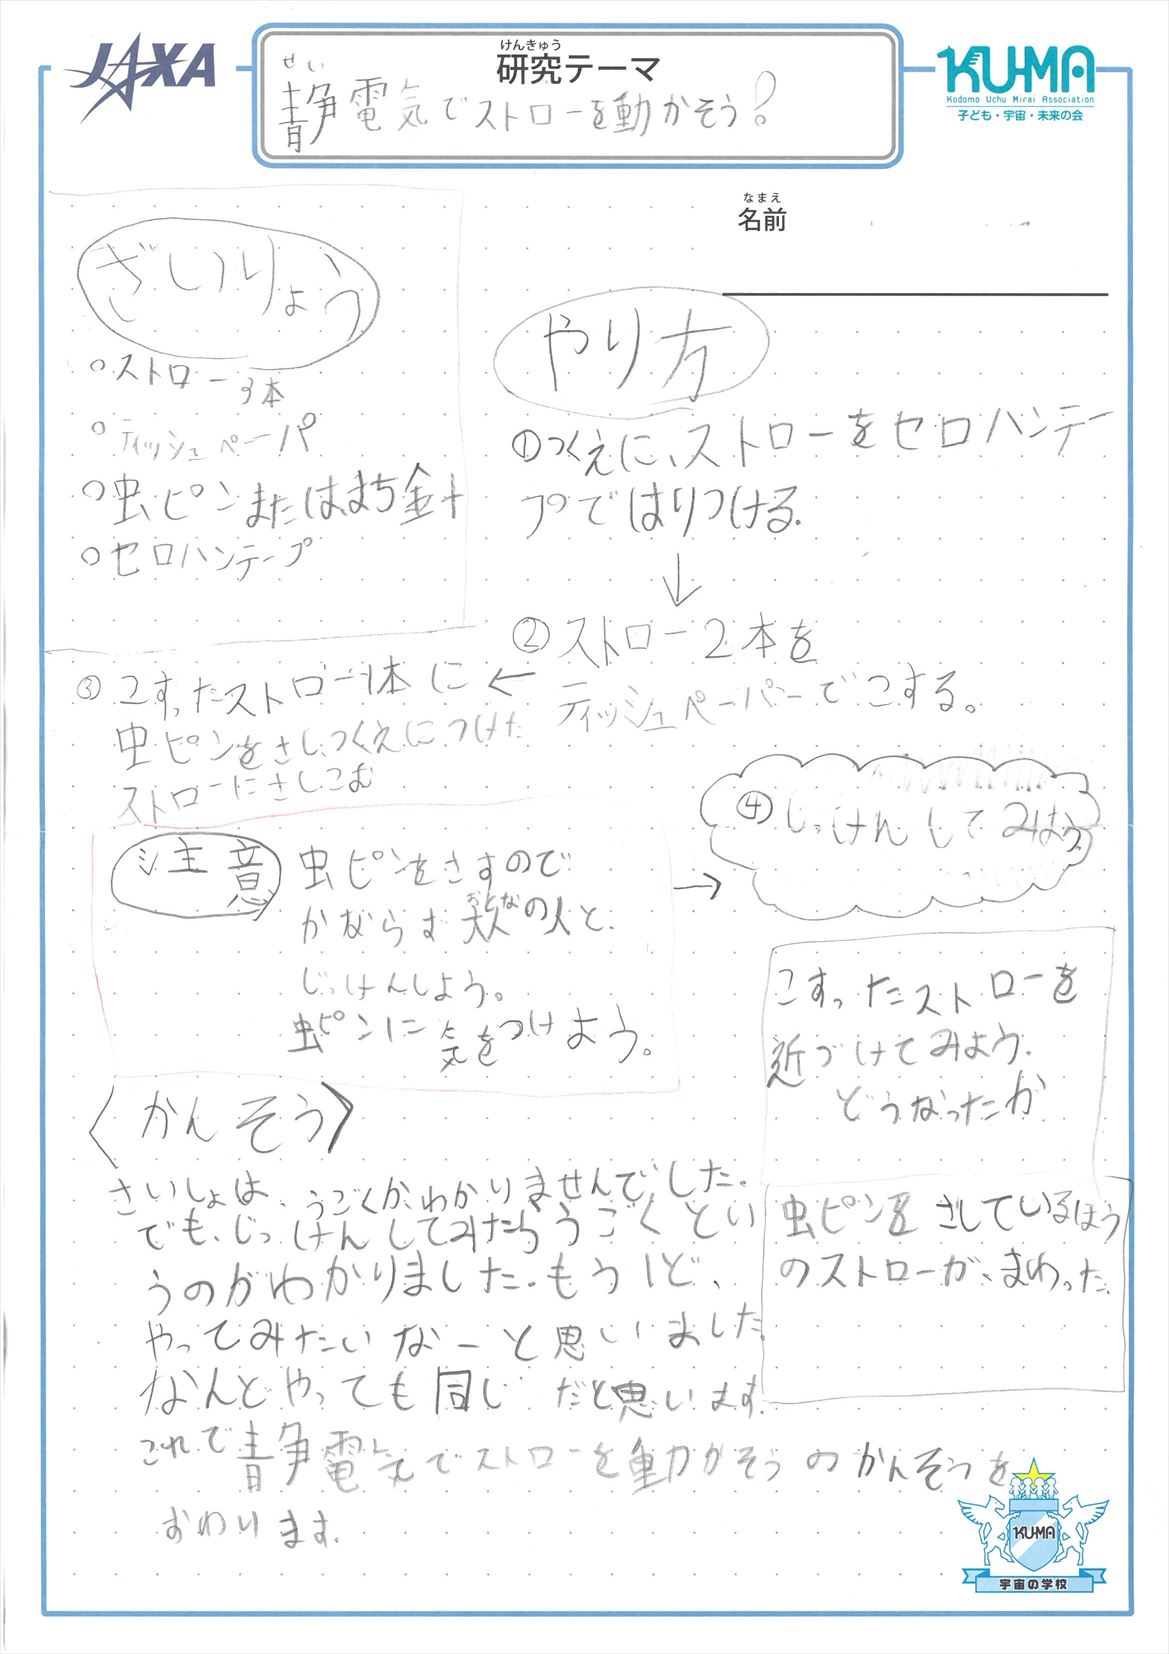 JAXA
けんきゅう
研究テーマ
せい
静電気でストローを動かそう?
KU-MA
Kodomo Uchu Mirai Association
子ども・宇宙・未来の会
なまえ
名前
ざいりょう
○ストロー3本
○ティッシュペーパ
○虫ピンまたはまち金十
○セロハンテープ
やり方
①つくえに、ストローをセロハンテー
プではりつける.
↓
②ストロー2本を
ティッシュペーパーでこする。
←
③こすったストロー1本に
虫ピンをさし、つくえにつけた
ストローにさしこむ
注意
虫ピンをさすので
かならず大人の人と、
おとな
じっけんしよう。
虫ピンに気をつけよう。
→
④じっけんしてみよう。
こすったストローを
近づけてみよう.
どうなったか
虫ピンをさしているほう
のストローが、まわった.
〈かんそう〉
さいしょは、うごくか、わかりませんでした.
でも、じっけんしてみたらうごくとい
うのがわかりました.もう1ど、
やってみたいなーと思いました.
なんどやっても同じだと思います.
これで静電気でストローを動かそうのかんそうを
おわります.
KU-MA
宇宙の学校